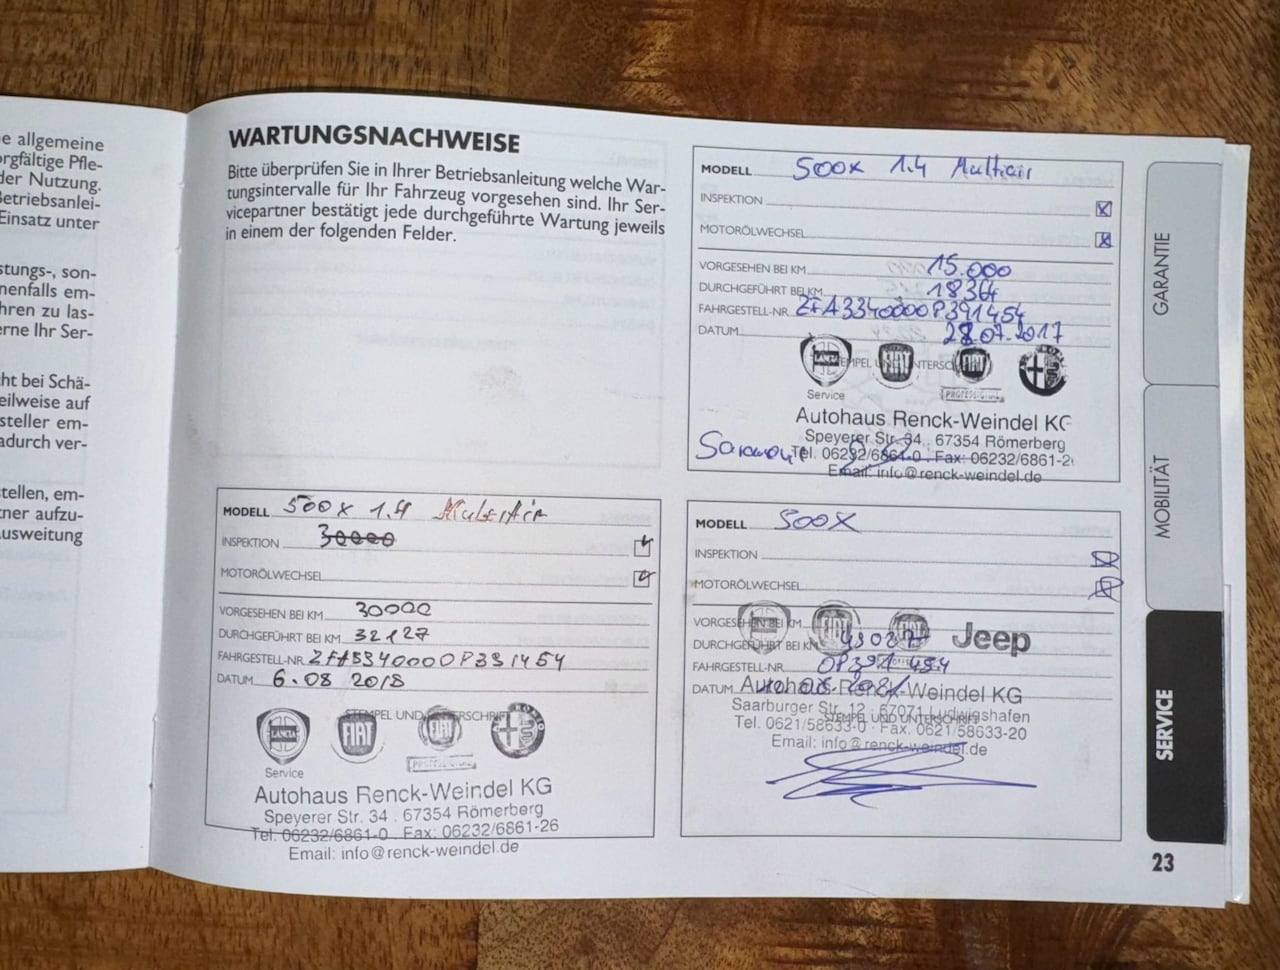 e allgemeine
rgfältige Pfle-
der Nutzung.
Betriebsanlei-
Einsatz unter
stungs-, son-
nenfalls em-
hren zu las-
erne Ihr Ser-
cht bei Schä-
eilweise auf
steller em-
adurch ver-
stellen, em-
tner aufzu-
usweitung
WARTUNGSNACHWEISE
Bitte überprüfen Sie in Ihrer Betriebsanleitung welche War-
tungsintervalle für Ihr Fahrzeug vorgesehen sind. Ihr Ser-
vicepartner bestätigt jede durchgeführte Wartung jeweils
in einem der folgenden Felder.
MODELL 500x 1.4 Multiair
INSPEKTION
MOTORÖLWECHSEL
VORGESEHEN BEI KM 15.000
DURCHGEFÜHRT BEI KM 18364
FAHRGESTELL-NR. ZFA3340000P391454
DATUM 28.07.2017
STEMPEL UND UNTERSCHRIFT
LANCIA FIAT FIAT
Service PROFESSIONAL
Autohaus Renck-Weindel KG
Speyerer Str. 34 . 67354 Römerberg
Tel. 06232/6861-0 . Fax: 06232/6861-2
Email: info@renck-weindel.de
MODELL 500X 1.4 MultiAir
INSPEKTION 30000
MOTORÖLWECHSEL
VORGESEHEN BEI KM 30000
DURCHGEFÜHRT BEI KM 32127
FAHRGESTELL-NR. ZFA3340000P391454
DATUM 6.08 2018
STEMPEL UND UNTERSCHRIFT
LANCIA FIAT FIAT
Service PROFESSIONAL
Autohaus Renck-Weindel KG
Speyerer Str. 34 . 67354 Römerberg
Tel. 06232/6861-0 . Fax: 06232/6861-26
Email: info@renck-weindel.de
MODELL 500X
INSPEKTION
MOTORÖLWECHSEL
VORGESEHEN BEI KM
FIAT Jeep
DURCHGEFÜHRT BEI KM
FAHRGESTELL-NR. 0P391454
DATUM
Autohaus Renck-Weindel KG
Saarburger Str. 12 . 67071 Ludwigshafen
STEMPEL UND UNTERSCHRIFT
Tel. 0621/58633-0 . Fax. 0621/58633-20
Email: info@renck-weindel.de
GARANTIE
MOBILITÄT
SERVICE
23